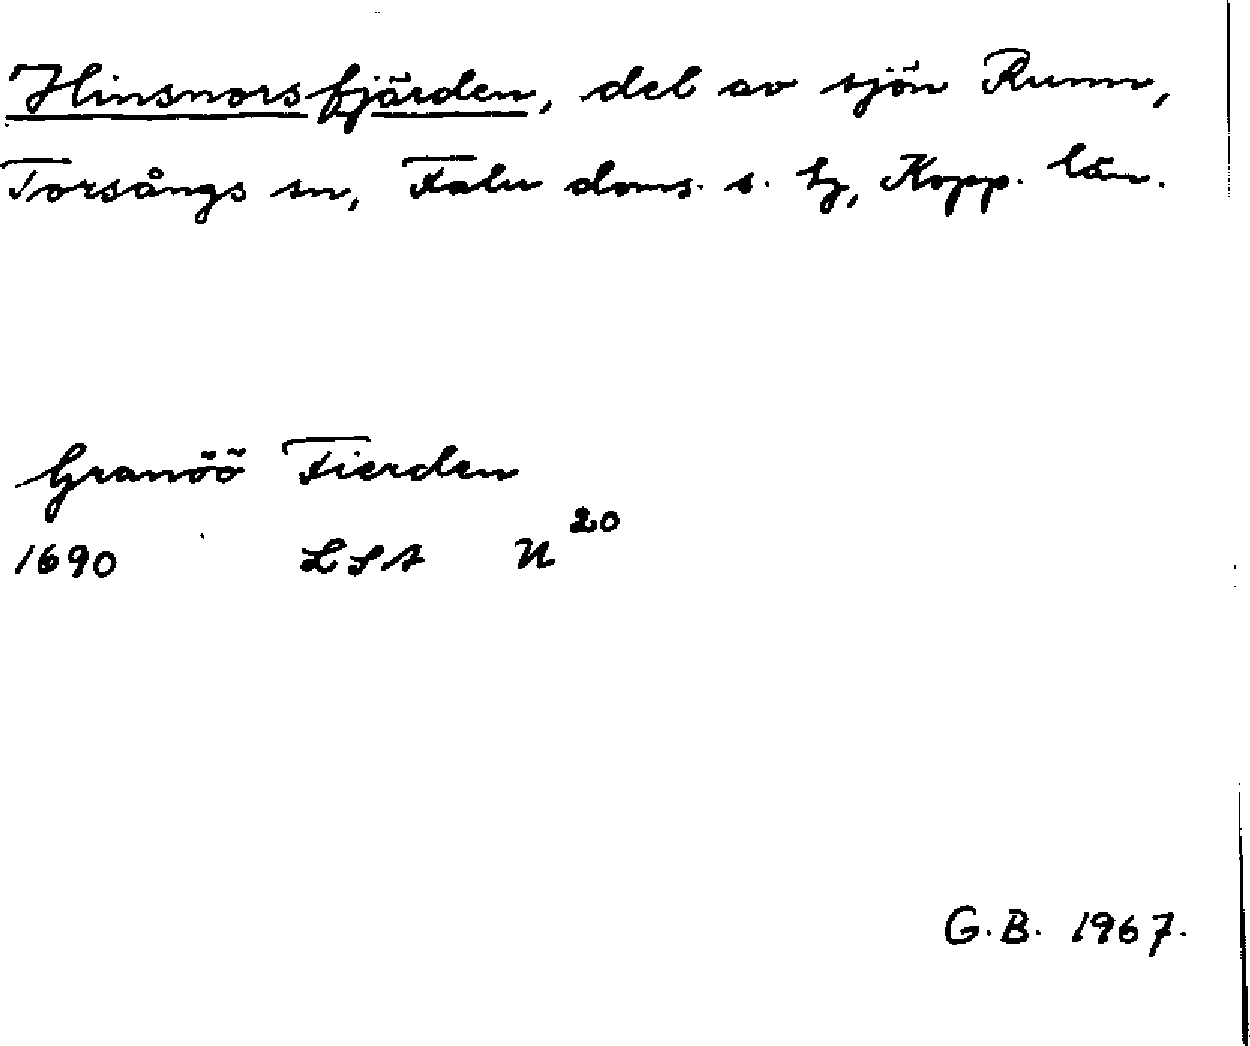 Hinsnorsfjärden, del av sjön Runn,
Torsångs sn, Falu doms. s. tg, Kopp. län.
Granöö Fierden
1690 LSA N 20
G.B. 1967.